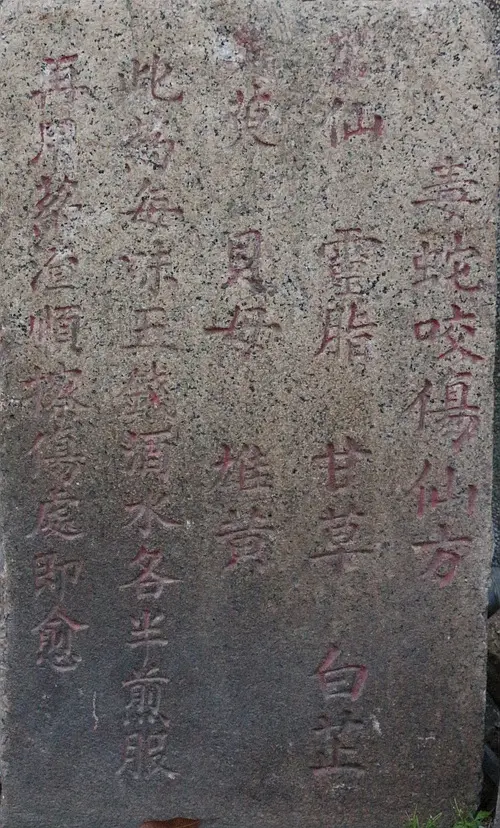 毒蛇咬傷仙方
仙 靈脂 甘草 白芷
貝母 雄黃
此為每味五錢酒水各半煎服
再用藥渣順擦傷處即愈